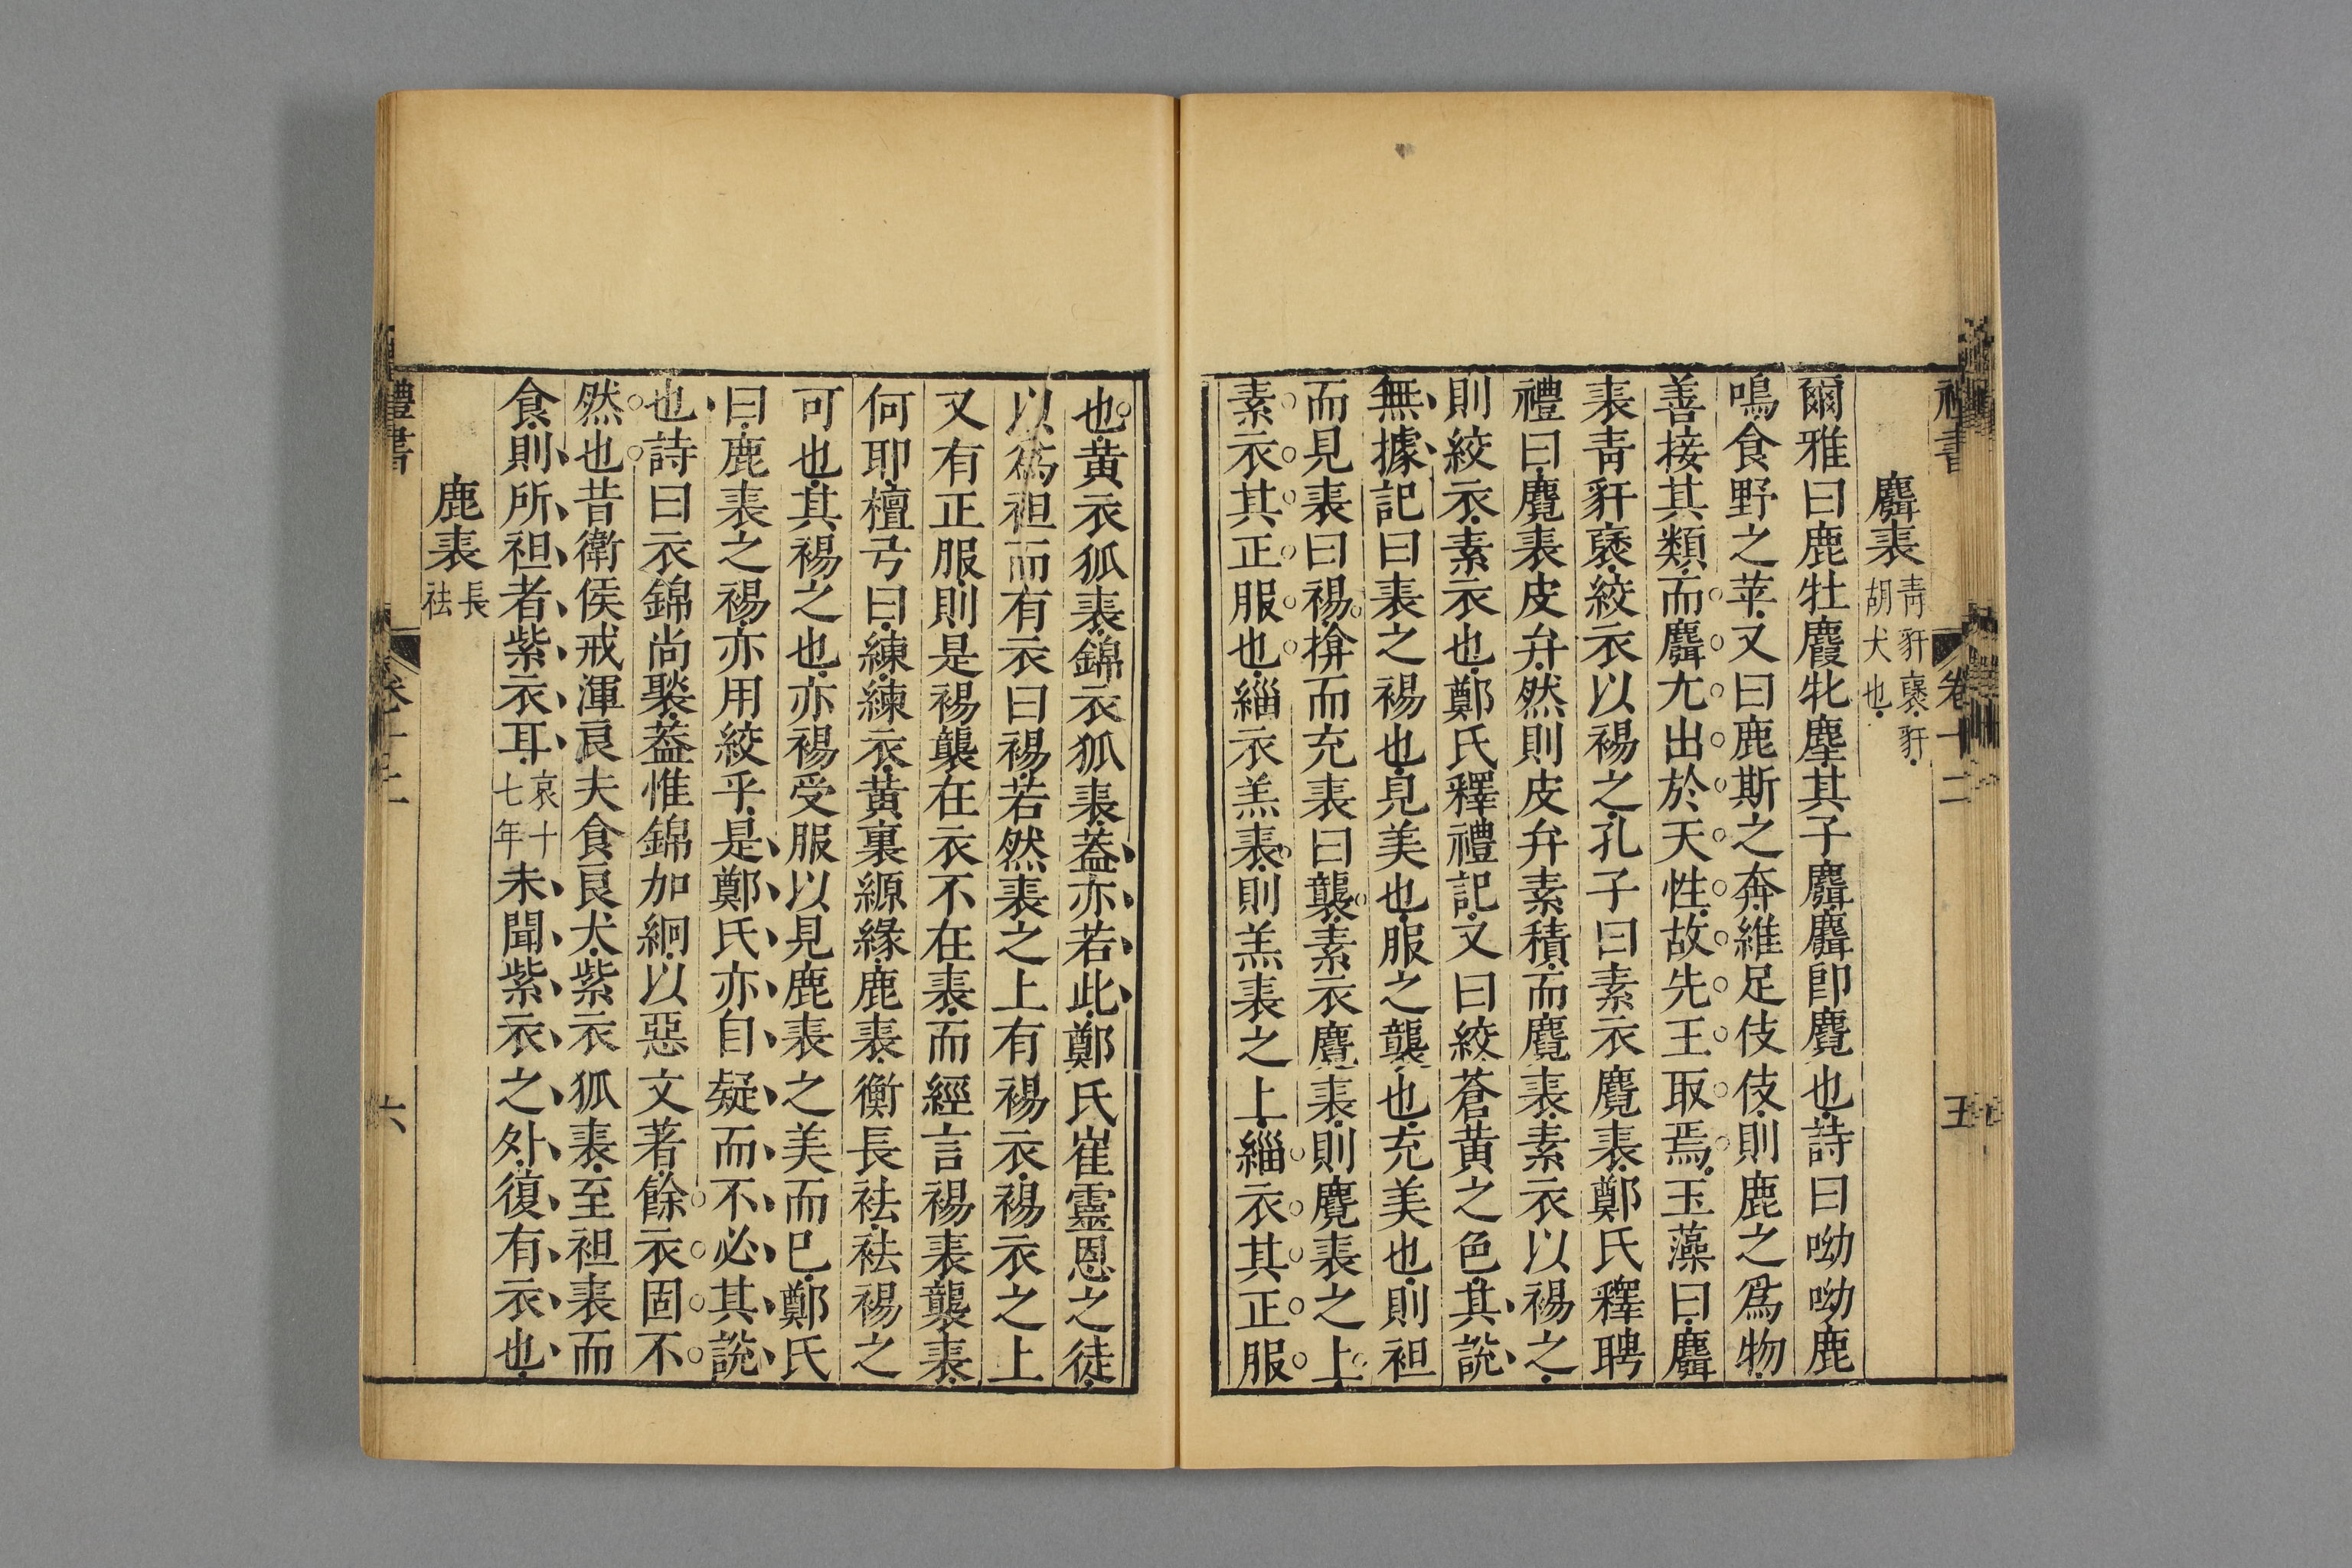 禮書 卷十二 五
麛裘 青豻褎豻胡犬也
爾雅曰鹿牡麚牝麀其子麛麛卽麑也詩曰呦呦鹿
鳴食野之苹又曰鹿斯之奔維足伎伎則鹿之爲物
善接其類而麛尤出於天性故先王取焉玉藻曰麛
裘靑豻褎絞衣以裼之孔子曰素衣麑裘鄭氏釋聘
禮曰麑裘皮弁然則皮弁素積而麑裘素衣以裼之
則絞衣素衣也鄭氏釋禮記又曰絞蒼黃之色其說
無據記曰裘之裼也見美也服之襲也充美也則袒
而見裘曰裼揜而充裘曰襲素衣麑裘則麑裘之上
素衣其正服也緇衣羔裘則羔裘之上緇衣其正服
也黃衣狐裘錦衣狐裘蓋亦若此鄭氏崔靈恩之徒
以爲袒而有衣曰裼若然裘之上有裼衣裼衣之上
又有正服則是裼襲在衣不在裘而經言裼裘襲裘
何耶檀弓曰練練衣黃裏縓緣鹿裘衡長袪袪裼之
可也其裼之也亦裼受服以見鹿裘之美而已鄭氏
曰鹿裘之裼亦用絞乎是鄭氏亦自疑而不必其說
也詩曰衣錦尚褧蓋惟錦加絅以惡文著餘衣固不
然也昔衛侯戒渾良夫食良犬紫衣狐裘至袒裘而
食則所袒者紫衣耳哀十七年未聞紫衣之外復有衣也
鹿裘 長袪
禮書 卷十二 六